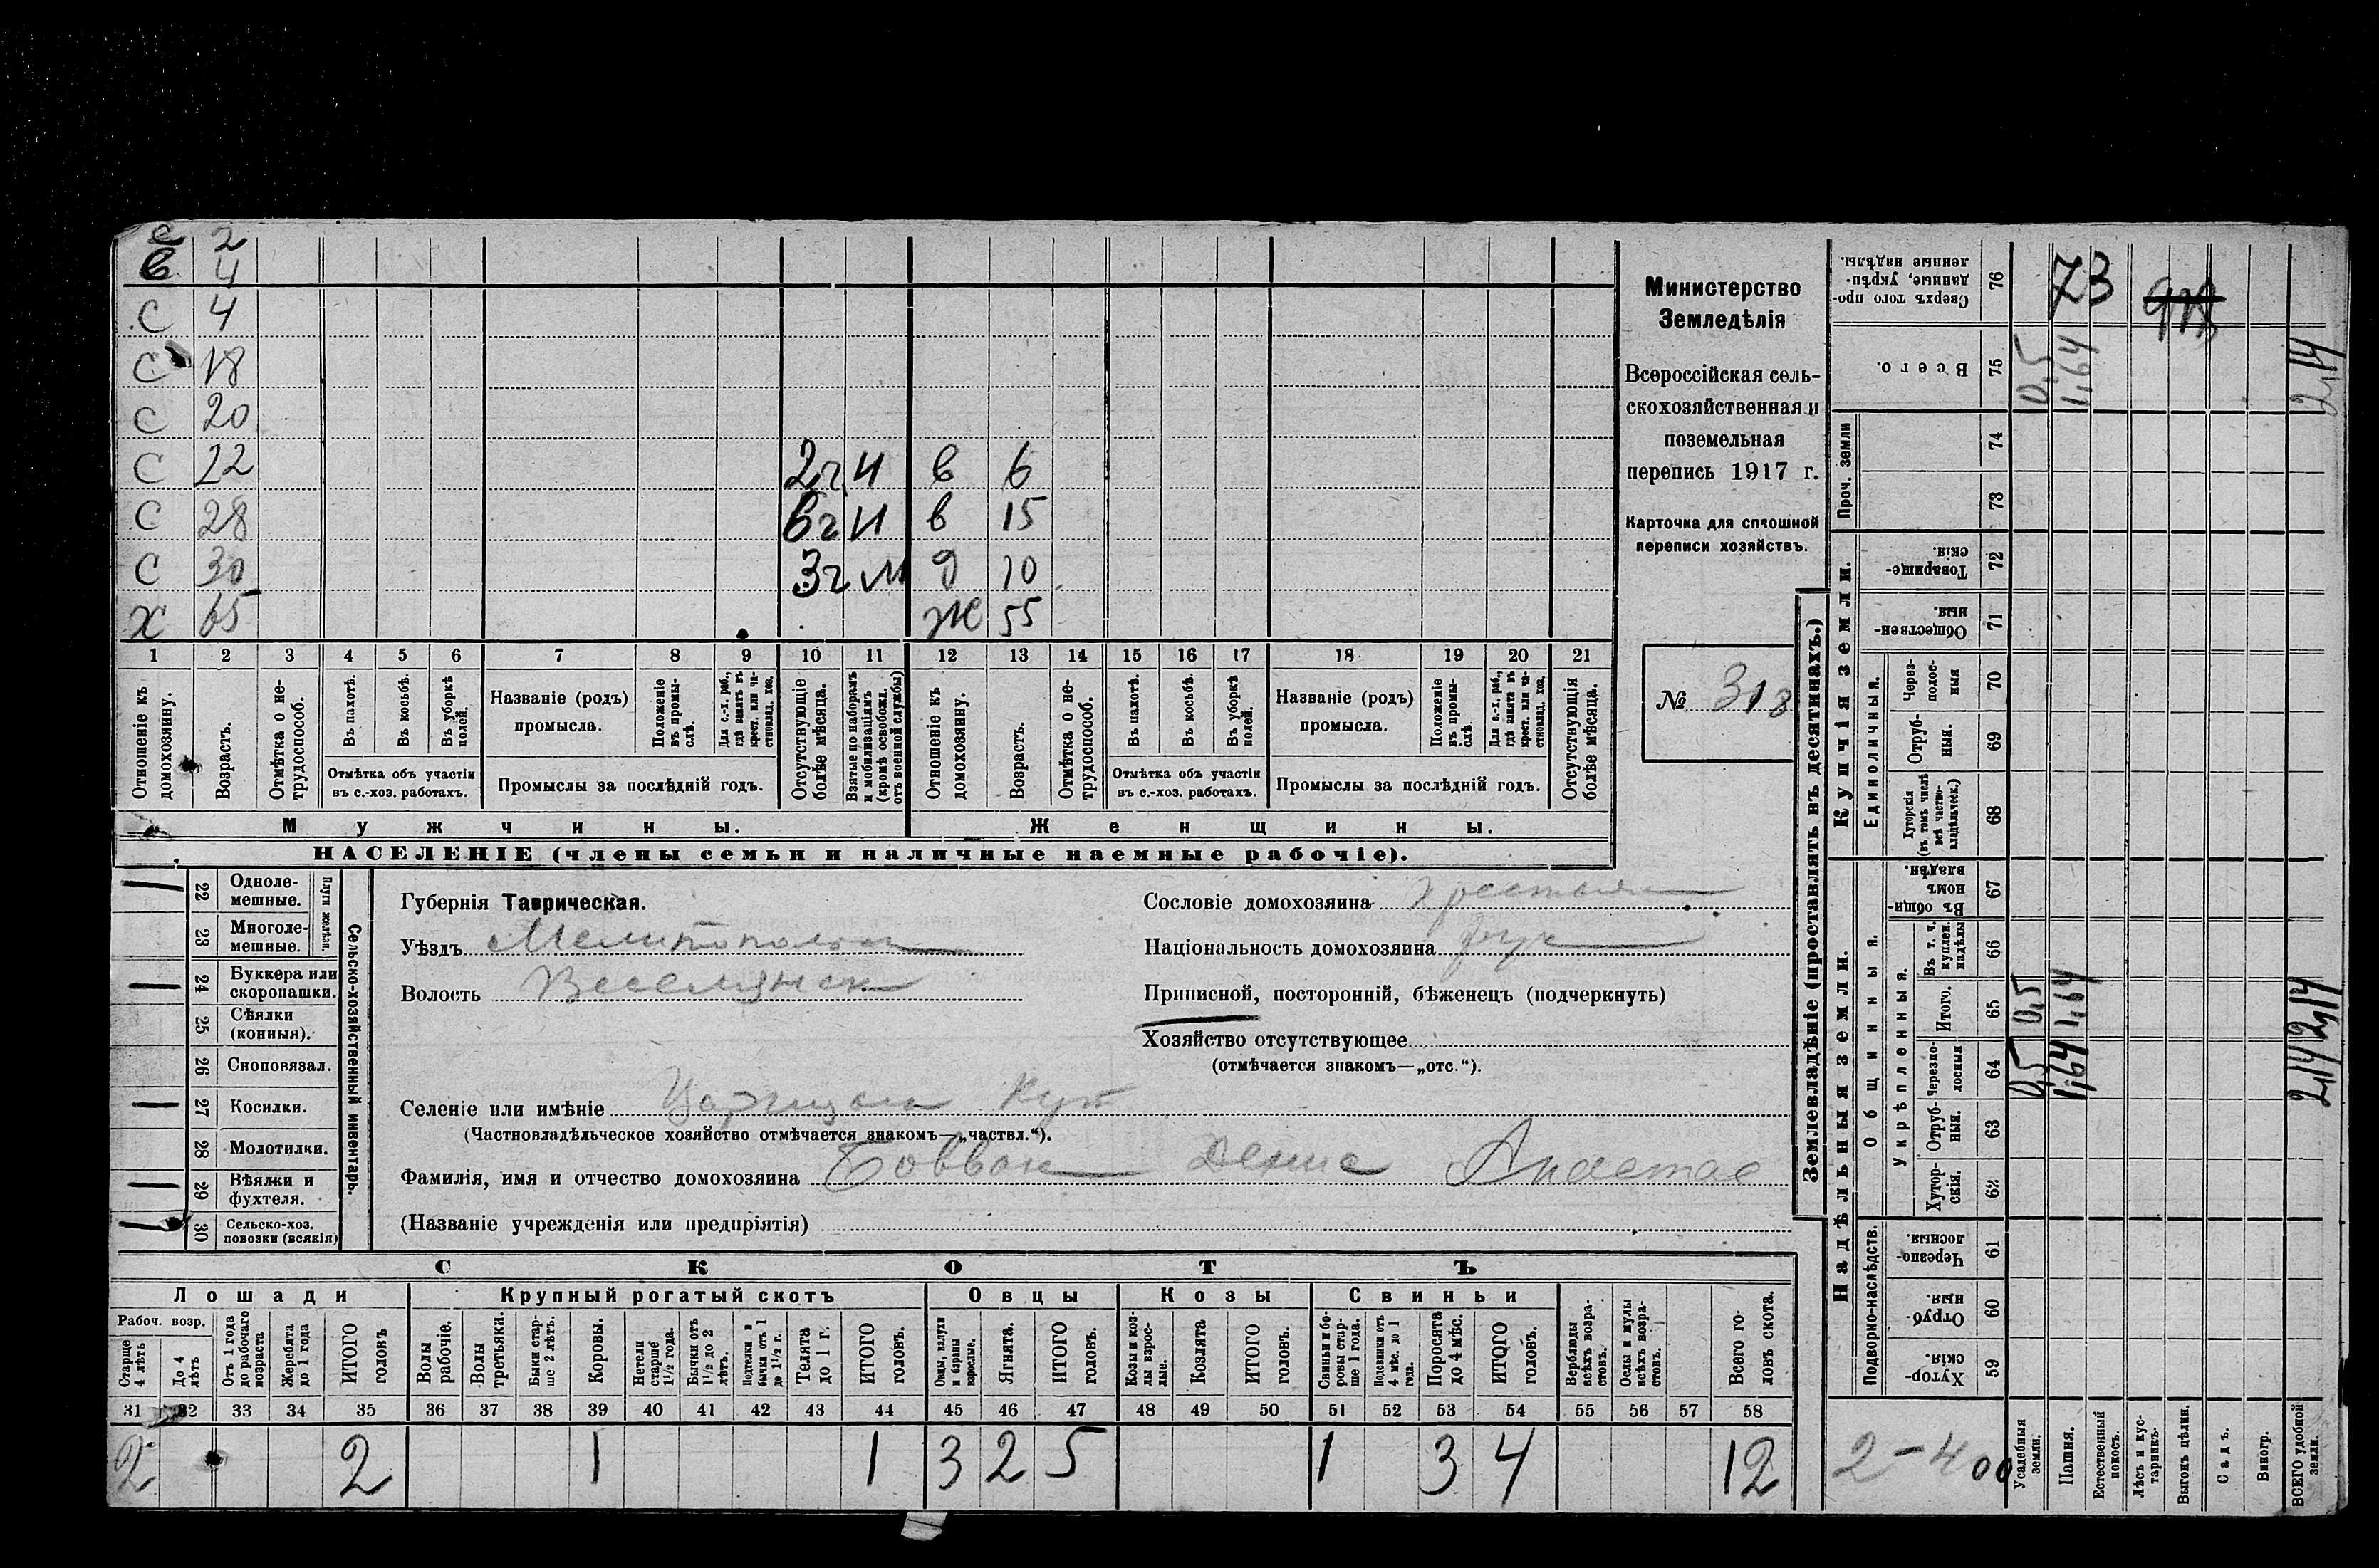 с 2
в 4
С 4
С 18
С 20
С 22 2г И в 6
С 28 6г И в 15
С 30 3г И д 10
Х 65 Ж 55
1 2 3 4 5 6 7 8 9 10 11 12 13 14 15 16 17 18 19 20 21
Отношеніе къ домохозяину.
Возрастъ.
Отмѣтка о не-трудоспособ.
Въ пахотѣ.
Въ косьбѣ.
Въ уборкѣ полей.
Отмѣтка объ участіи въ с.-хоз. работахъ.
Названіе (родъ) промысла.
Положеніе въ промыслѣ.
Для с.-х. раб., гдѣ занятъ въ крест. или частновлад. хоз.
Промыслы за послѣдній годъ.
Отсутствующіе болѣе мѣсяца.
Взятые по наборамъ и мобилизаціямъ (кромѣ освобожд. отъ военной службы)
Отношеніе къ домохозяину.
Возрастъ.
Отмѣтка о не-трудоспособ.
Въ пахотѣ.
Въ косьбѣ.
Въ уборкѣ полей.
Отмѣтка объ участіи въ с.-хоз. работахъ.
Названіе (родъ) промысла.
Положеніе въ промыслѣ.
Для с.-х. раб., гдѣ занята въ крест. или частновлад. хоз.
Промыслы за послѣдній годъ.
Отсутствующія болѣе мѣсяца.
Мужчины.
Женщины.
НАСЕЛЕНІЕ (члены семьи и наличные наемные рабочіе).
Министерство
Земледѣлія
Всероссійская сель-
скохозяйственная и
поземельная
перепись 1917 г.
Карточка для сплошной
переписи хозяйствъ.
№ 313
22 Одноле-мешные.
23 Многоле-мешные.
Плуги желѣзн.
24 Буккера или скоропашки.
25 Сѣялки (конныя).
26 Сноповязал.
27 Косилки.
28 Молотилки.
29 Вѣялки и фухтеля.
30 Сельско-хоз. повозки (всякія)
Сельско-хозяйственный инвентарь.
Губернія Таврическая.
Уѣздъ Мелитопольск
Волость Веселянск
Сословіе домохозяина крестьян
Національность домохозяина рус
Приписной, посторонній, бѣженецъ (подчеркнуть)
Хозяйство отсутствующее
(отмѣчается знакомъ—„отс.“).
Селеніе или имѣніе Царицын Кут
(Частновладѣльческое хозяйство отмѣчается знакомъ—„частвл.“).
Фамилія, имя и отчество домохозяина Боввон Денис Анастас
(Названіе учрежденія или предпріятія)
СКОТЪ
Лошади
Крупный рогатый скотъ
Овцы
Козы
Свиньи
Рабоч. возр.
Старше 4 лѣтъ
До 4 лѣтъ
Отъ 1 года до рабочаго возраста
Жеребята до 1 года
ИТОГО головъ
Волы рабочіе.
Волы третьяки.
Быки стар-ше 2 лѣтъ.
Коровы.
Нетели старше 1½ года.
Бычки отъ 1½ до 2 лѣтъ.
Подтелки и бычки отъ 1 до 1½ г.
Телята до 1 г.
ИТОГО головъ.
Овцы, валухи и бараны взрослые.
Ягнята.
ИТОГО головъ.
Козы и коз-лы взрос-лые.
Козлята
ИТОГО головъ.
Свиньи и бо-ровы стар-ше 1 года.
Подсвинки отъ 4 мѣс. до 1 года.
Поросята до 4 мѣс.
ИТОГО головъ.
Верблюды всѣхъ возра-стовъ.
Ослы и мулы всѣхъ возра-стовъ.
Всего го-ловъ скота.
31 32 33 34 35 36 37 38 39 40 41 42 43 44 45 46 47 48 49 50 51 52 53 54 55 56 57 58
2 2 1 1 3 2 5 1 3 4 12
Землевладѣніе (проставлять въ десятинахъ.)
Купчія земли.
Надѣльныя земли.
Проч. земли
Единоличныя.
Общинныя.
Укрѣпленныя.
Подворно-наслѣдств.
76 Сверхъ того про-данные, укрѣп-ленные надѣлы. 73
75 Всего. 0,5 1,64 2,14
74
73
72 Товарище-скія.
71 Обществен-ныя.
70 Через-полос-ныя
69 Отруб-ныя.
68 Хуторскія (въ томъ числѣ всѣ частно-владѣльческ.)
67 Въ общи-номъ владѣн.
66 Въ т. ч. куплен. надѣлы
65 Итого. 0,5 1,64 2,14
64 Черезпо-лосныя 0,5 1,64 2,14
63 Отруб-ныя.
62 Хутор-скія.
61 Черезпо-лосныя.
60 Отруб-ныя.
59 Хутор-скія.
2-400
Усадебныя земли.
Пашня.
Естественный покосъ.
Лѣсъ и кус-тарникъ.
Выгонъ цѣлин.
Садъ.
Виногр.
ВСЕГО удобной земли.